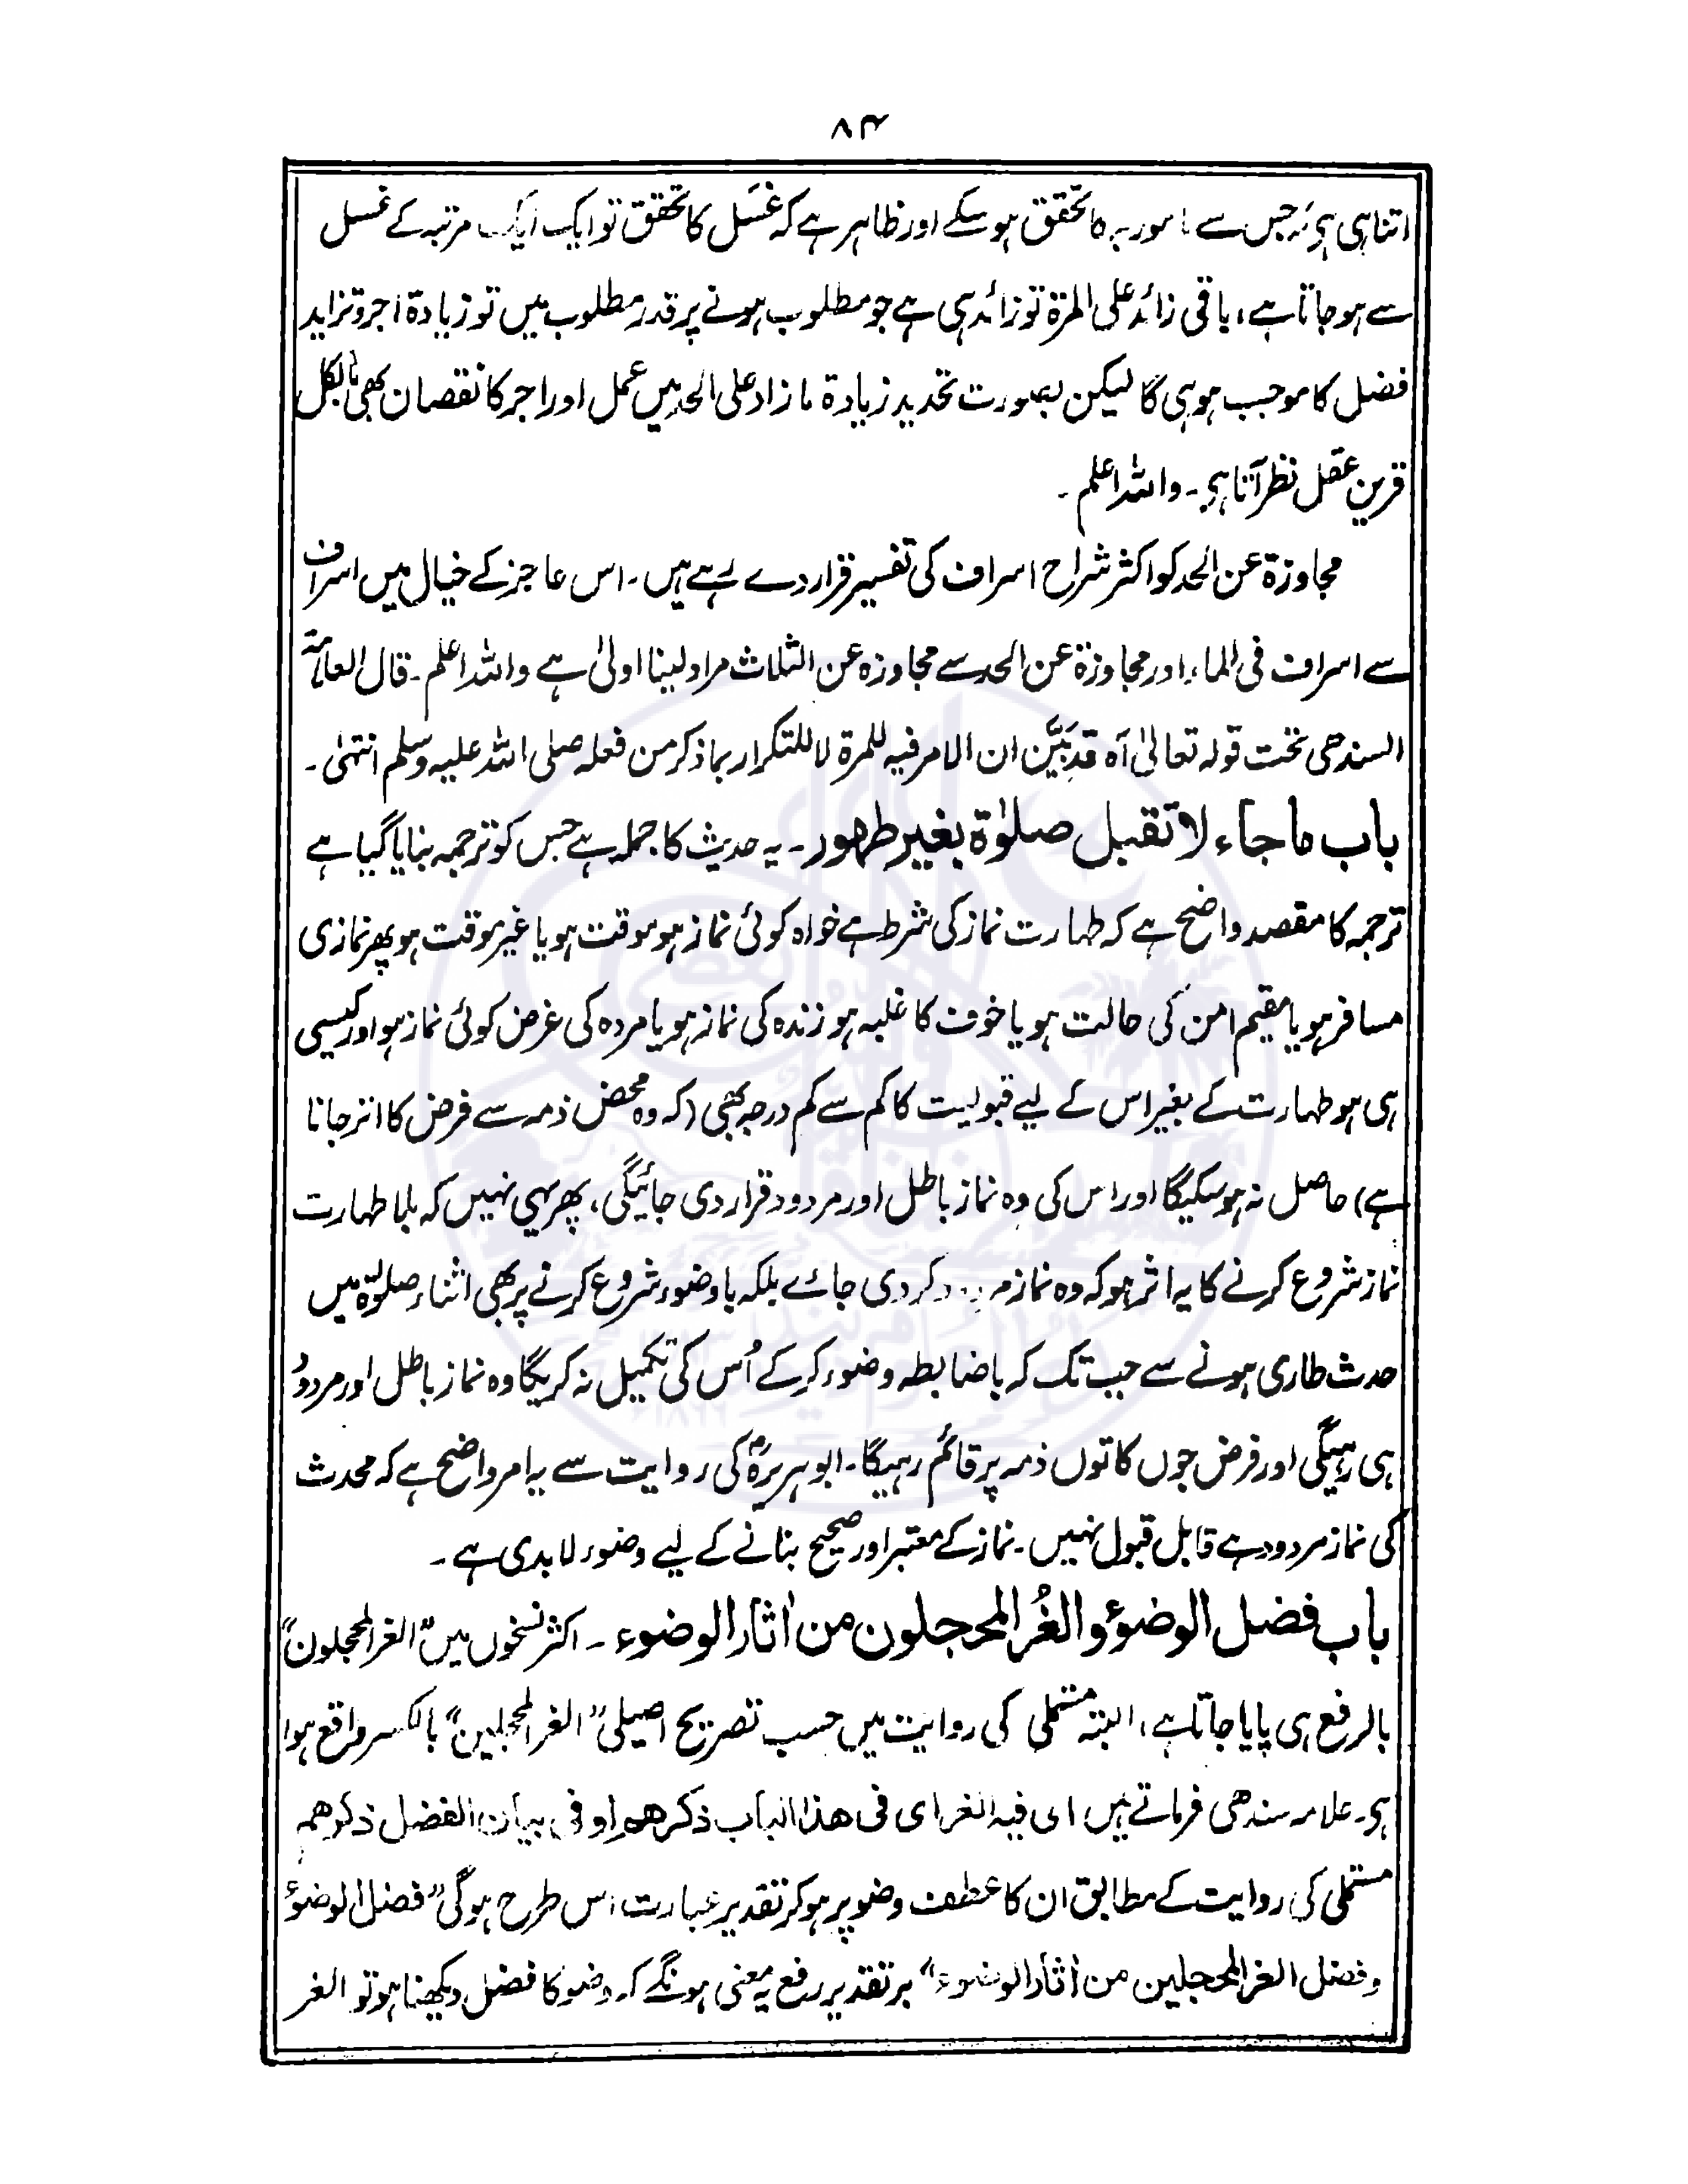 ۸۴
اتنا ہی ہی کہ جس سے مامور بہ کا تحقق ہوسکے اور ظاہر ہے کہ غسل کا تحقق تو ایک ایک مرتبہ کے غسل
سے ہوجاتا ہے، باقی زائد علی المرة تو زائد ہی ہے جو مطلوب ہونے پر قدر مطلوب میں تو زیادة اجر و تزاید
فضل کا موجب ہو ہی گا لیکن بصورت تحدید زیادة ما زاد علی الحد میں عمل اور اجر کا نقصان بھی بالکل
قرین عقل نظر آتا ہی۔ واللہ اعلم۔
مجاوزة عن الحد کو اکثر شراح اسراف کی تفسیر قرار دے رہے ہیں۔ اس عاجز کے خیال میں اسراف
سے اسراف فی الماء اور مجاوزة عن الحد سے مجاوزہ عن الثلاث مراد لینا اولیٰ ہے واللہ اعلم۔ قال العلامة
السندھی تحت قولہ تعالیٰ آہ قد بَیَّن ان الامر فیہ للمرة لا للتکرار بما ذکر من فعلہ صلی اللہ علیہ وسلم انتہیٰ۔
باب ما جاء لا تقبل صلوٰة بغیر طہور۔ یہ حدیث کا جملہ ہے جس کو ترجمہ بنایا گیا ہے
ترجمہ کا مقصد واضح ہے کہ طہارت نماز کی شرط ہے خواہ کوئی نماز ہو موقت ہو یا غیر موقت ہو پھر نمازی
مسافر ہو یا مقیم امن کی حالت ہو یا خوف کا غلبہ ہو زندہ کی نماز ہو یا مردہ کی غرض کوئی نماز ہو اور کیسی
ہی ہو طہارت کے بغیر اس کے لیے قبولیت کا کم سے کم درجہ بھی (کہ وہ محض ذمہ سے فرض کا اتر جانا
ہے) حاصل نہ ہوسکیگا اور اس کی وہ نماز باطل اور مردود قرار دی جائیگی، پھر یہی نہیں کہ بلا طہارت
نماز شروع کرنے کا یہ اثر ہو کہ وہ نماز مردود کردی جائے بلکہ باوضوء شروع کرنے پر بھی اثناء صلوٰة میں
حدث طاری ہونے سے جب تک کہ باضابطہ وضوء کرکے اُس کی تکمیل نہ کریگا وہ نماز باطل اور مردود
ہی رہیگی اور فرض جوں کا توں ذمہ پر قائم رہیگا۔ ابوہریرہؓ کی روایت سے یہ امر واضح ہے کہ محدث
کی نماز مردود ہے قابل قبول نہیں۔ نماز کے معتبر اور صحیح بنانے کے لیے وضوء لابدی ہے۔
باب فضل الوضوء والغُر المحجلون من اٰثار الوضوء۔ اکثر نسخوں میں "الغر المحجلون"
بالرفع ہی پایا جاتا ہے، البتہ مستملی کی روایت میں حسب تصریح اصیلی "الغر المحجلین" بالکسر واقع ہوا
ہی۔ علامہ سندھی فرماتے ہیں ای فیہ الغر ای فی ھذا الباب ذکرھم او فی بیان الفضل ذکرھم
مستملی کی روایت کے مطابق ان کا عطف وضو پر ہوکر تقدیر عبارت اس طرح ہوگی "فضل الوضوء
وفضل الغر المحجلین من اٰثار الوضوء" بر تقدیر رفع یہ معنی ہونگے کہ وضو کا فضل دیکھنا ہو تو الغر